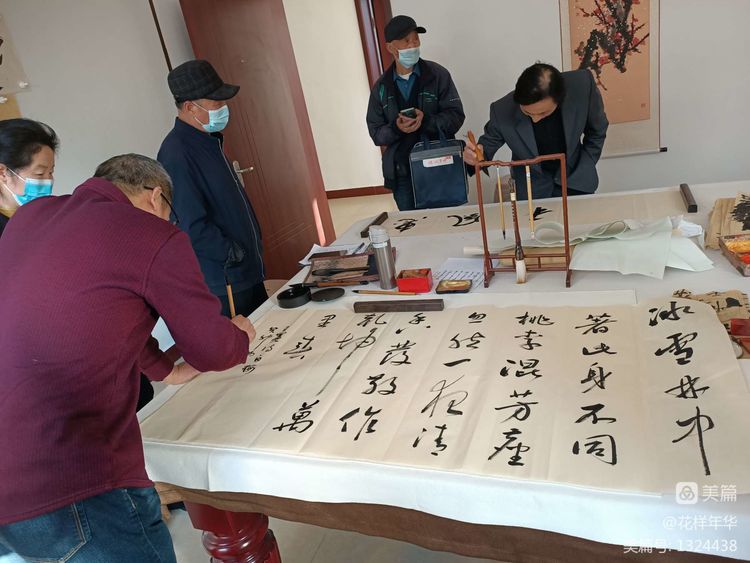 冰雪林中
著此身不同
桃李混芳塵
忽然一夜清
香發散作
乾坤萬
里春
美篇
@花样年华
美篇号: 1324438